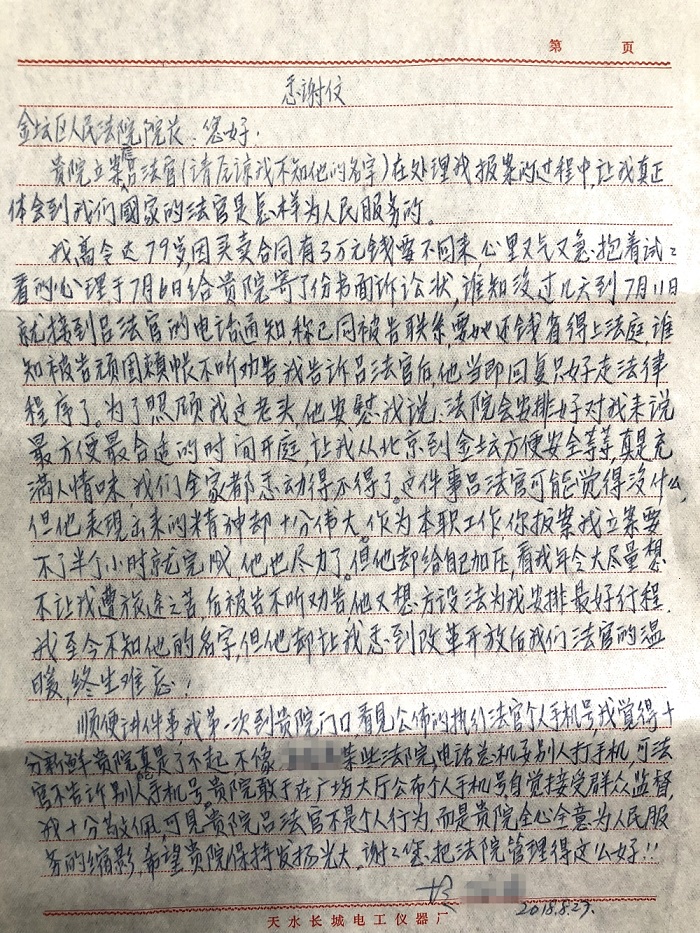 第 页
感谢信
金坛区人民法院院长：您好！
贵院立案庭吕法官(请原谅我不知他的名字)在处理我报案的过程中，让我真正
体会到我们国家的法官是怎样为人民服务的。
我高令达79岁，因买卖合同有3万元钱要不回来心里又气又急，抱着试：
看的心理于7月6日给贵院寄了份书面诉讼状，谁知没过几天到7月11日
就接到吕法官的电话通知，称已同被告联系要她还钱省得上法庭，谁
知被告顽固赖帐不听劝告我告诉吕法官后，他当即回复只好走法律
程序了。为了照顾我这老头，他安慰我说，法院会安排好对我来说
最方便最合适的时间开庭，让我从北京到金坛方便安全等等真是充
满人情味，我们全家都感动得不得了。这件事吕法官可能觉得没什么，
但他表现出来的精神却十分伟大。作为本职工作，你报案我立案要
不了半个小时就完成，他也尽力了。但他却给自己加压，看我年令大尽量想
不让我遭旅途之苦，后被告不听劝告他又想方设法为我安排最好行程，
我至今不知他的名字，但他却让我感到改革开放后我们法官的温
暖，终生难忘！
顺便讲件事，我第一次到贵院门口，看见公佈的执行法官个人手机号，我觉得十
分新鲜贵院真是了不起，不像 某些法院电话总机要别人打手机，可法
官不告诉别人手机号。贵院敢于在广场大厅公布个人手机号自觉接受群众监督，
我十分敬佩，可见贵院吕法官不是个人行为，而是贵院全心全意为人民服
务的缩影，希望贵院保持发扬光大。谢：您把法院管理得这么好!!
2018.8.23.
天水长城电工仪器厂